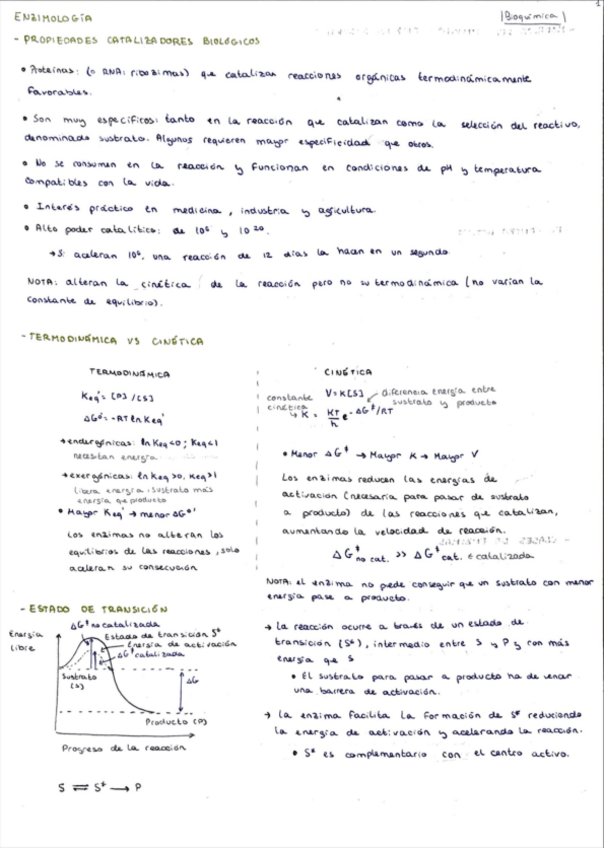 1
ENZIMOLOGÍA
|Bioquímica|
- PROPIEDADES CATALIZADORES BIOLÓGICOS
• Proteínas: (o RNA: ribozimas) que catalizan reacciones orgánicas termodinámicamente
favorables.
• Son muy específicos: tanto en la reacción que catalizan como la selección del reactivo,
denominado sustrato. Algunos requieren mayor especificidad que otros.
• No se consumen en la reacción y funcionan en condiciones de pH y temperatura
compatibles con la vida.
• Interés práctico en medicina, industria y agricultura.
• Alto poder catalítico: de 10⁶ y 10²⁰.
→ Si aceleran 10⁶, una reacción de 12 días la hacen en un segundo
NOTA: alteran la cinética de la reacción pero no su termodinámica (no varían la
constante de equilibrio).
- TERMODINÁMICA VS CINÉTICA
TERMODINÁMICA
Keq' = [P] / [S]
ΔG°' = -RT ln Keq'
→ endergónicas: ln Keq < 0; Keq < 1
necesitan energía
→ exergónicas: ln Keq > 0, Keq > 1
libera energía: sustrato más
energía que producto
• Mayor Keq' → menor ΔG°'
Los enzimas no alteran los
equilibrios de las reacciones, solo
aceleran su consecución
CINÉTICA
V = K[S]
diferencia energía entre
sustrato y producto
constante
cinética
K = KT/h e^-ΔG‡/RT
• Menor ΔG‡ → Mayor K → Mayor V
Los enzimas reducen las energías de
activación (necesaria para pasar de sustrato
a producto) de las reacciones que catalizan,
aumentando la velocidad de reacción.
ΔG‡ no cat. >> ΔG‡ cat. catalizada
NOTA: el enzima no puede conseguir que un sustrato con menor
energía pase a producto.
- ESTADO DE TRANSICIÓN
ΔG‡ no catalizada
Energía
libre
Estado de transición S‡
Energía de activación
ΔG‡ catalizada
Sustrato
(S)
ΔG
Producto (P)
Progreso de la reacción
S ⇌ S‡ → P
→ La reacción ocurre a través de un estado de
transición (S‡), intermedio entre S y P y con más
energía que S
• El sustrato para pasar a producto ha de vencer
una barrera de activación.
→ La enzima facilita la formación de S‡ reduciendo
la energía de activación y acelerando la reacción.
• S‡ es complementario con el centro activo.